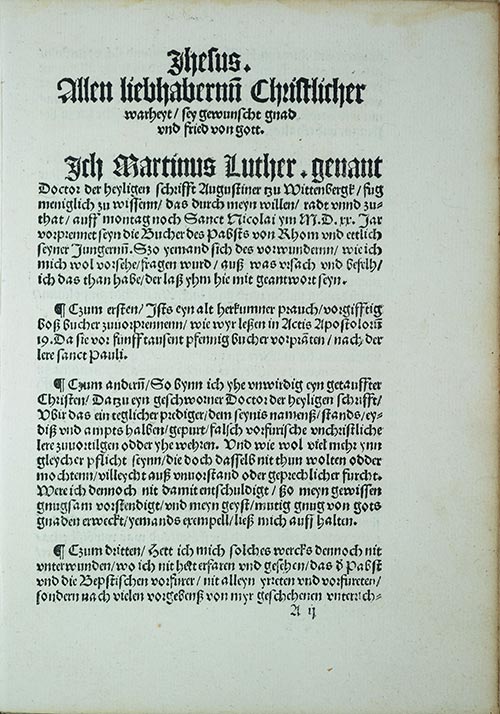 Jhesus.
Allen liebhabernn̄ Christlicher
warheyt / sey gewunscht gnad
vnd fried von gott.
Ich Martinus Luther . genant
Doctor der heyligen schrifft Augustiner tzu Wittenbergk / fug
meniglich zu wissenn / das durch meyn willen / radt vnnd zu-
that / auff montag noch Sanct Nicolai ym M.D.xx. Jar
vorprennet seyn die Bucher des Pabsts von Rhom vnd ettlich
seyner Jungernn̄. Szo yemand sich des vorwundernn / wie ich
mich wol vorsehe / fragen wurd / auß was vrsach vnd befelh /
ich das than habe / der laß yhm hie mit geantwort seyn.
¶ Czum ersten / Ists eyn alt herkumner prauch / vorgifftig
boß bucher zuuorprennenn / wie wyr leßen in Actis Apostolorū
19. Da sie vor funfftausent pfennig bucher vorprāten / nach der
lere sanct Pauli.
¶ Czum andern̄ / So bynn ich yhe vnwirdig eyn getauffter
Christen / Datzu eyn geschworner Doctor der heyligen schrifft /
Vbir das ein teglicher prediger / dem seynis namenß / stands / ey-
diß vnd ampts halben / gepurt / falsch vorfurische vnchristliche
lere zuuortilgen odder yhe wehren. Vnd wie wol viel mehr ynn
gleycher pflicht seynn / die doch dasselb nit thun wolten odder
mochtenn / villeycht auß vnuorstand oder geprechlicher furcht.
Were ich dennoch nit damit entschuldigt / ßo meyn gewissen
gnugsam vorstendigt / vnd meyn geyst / mutig gnug von gots
gnaden erweckt / yemands exempell / ließ mich auff halten.
¶ Czum dritten / Hett ich mich solches wercks dennoch nit
vnterwunden / wo ich nit hett erfaren vnd gesehen / das d̄ Pabst
vnd die Bepstischen vorfurer / nit alleyn yrreten vnd vorfureten /
sondern nach vielen vorgebenß von myr geschehenen vnterrich-
A ij